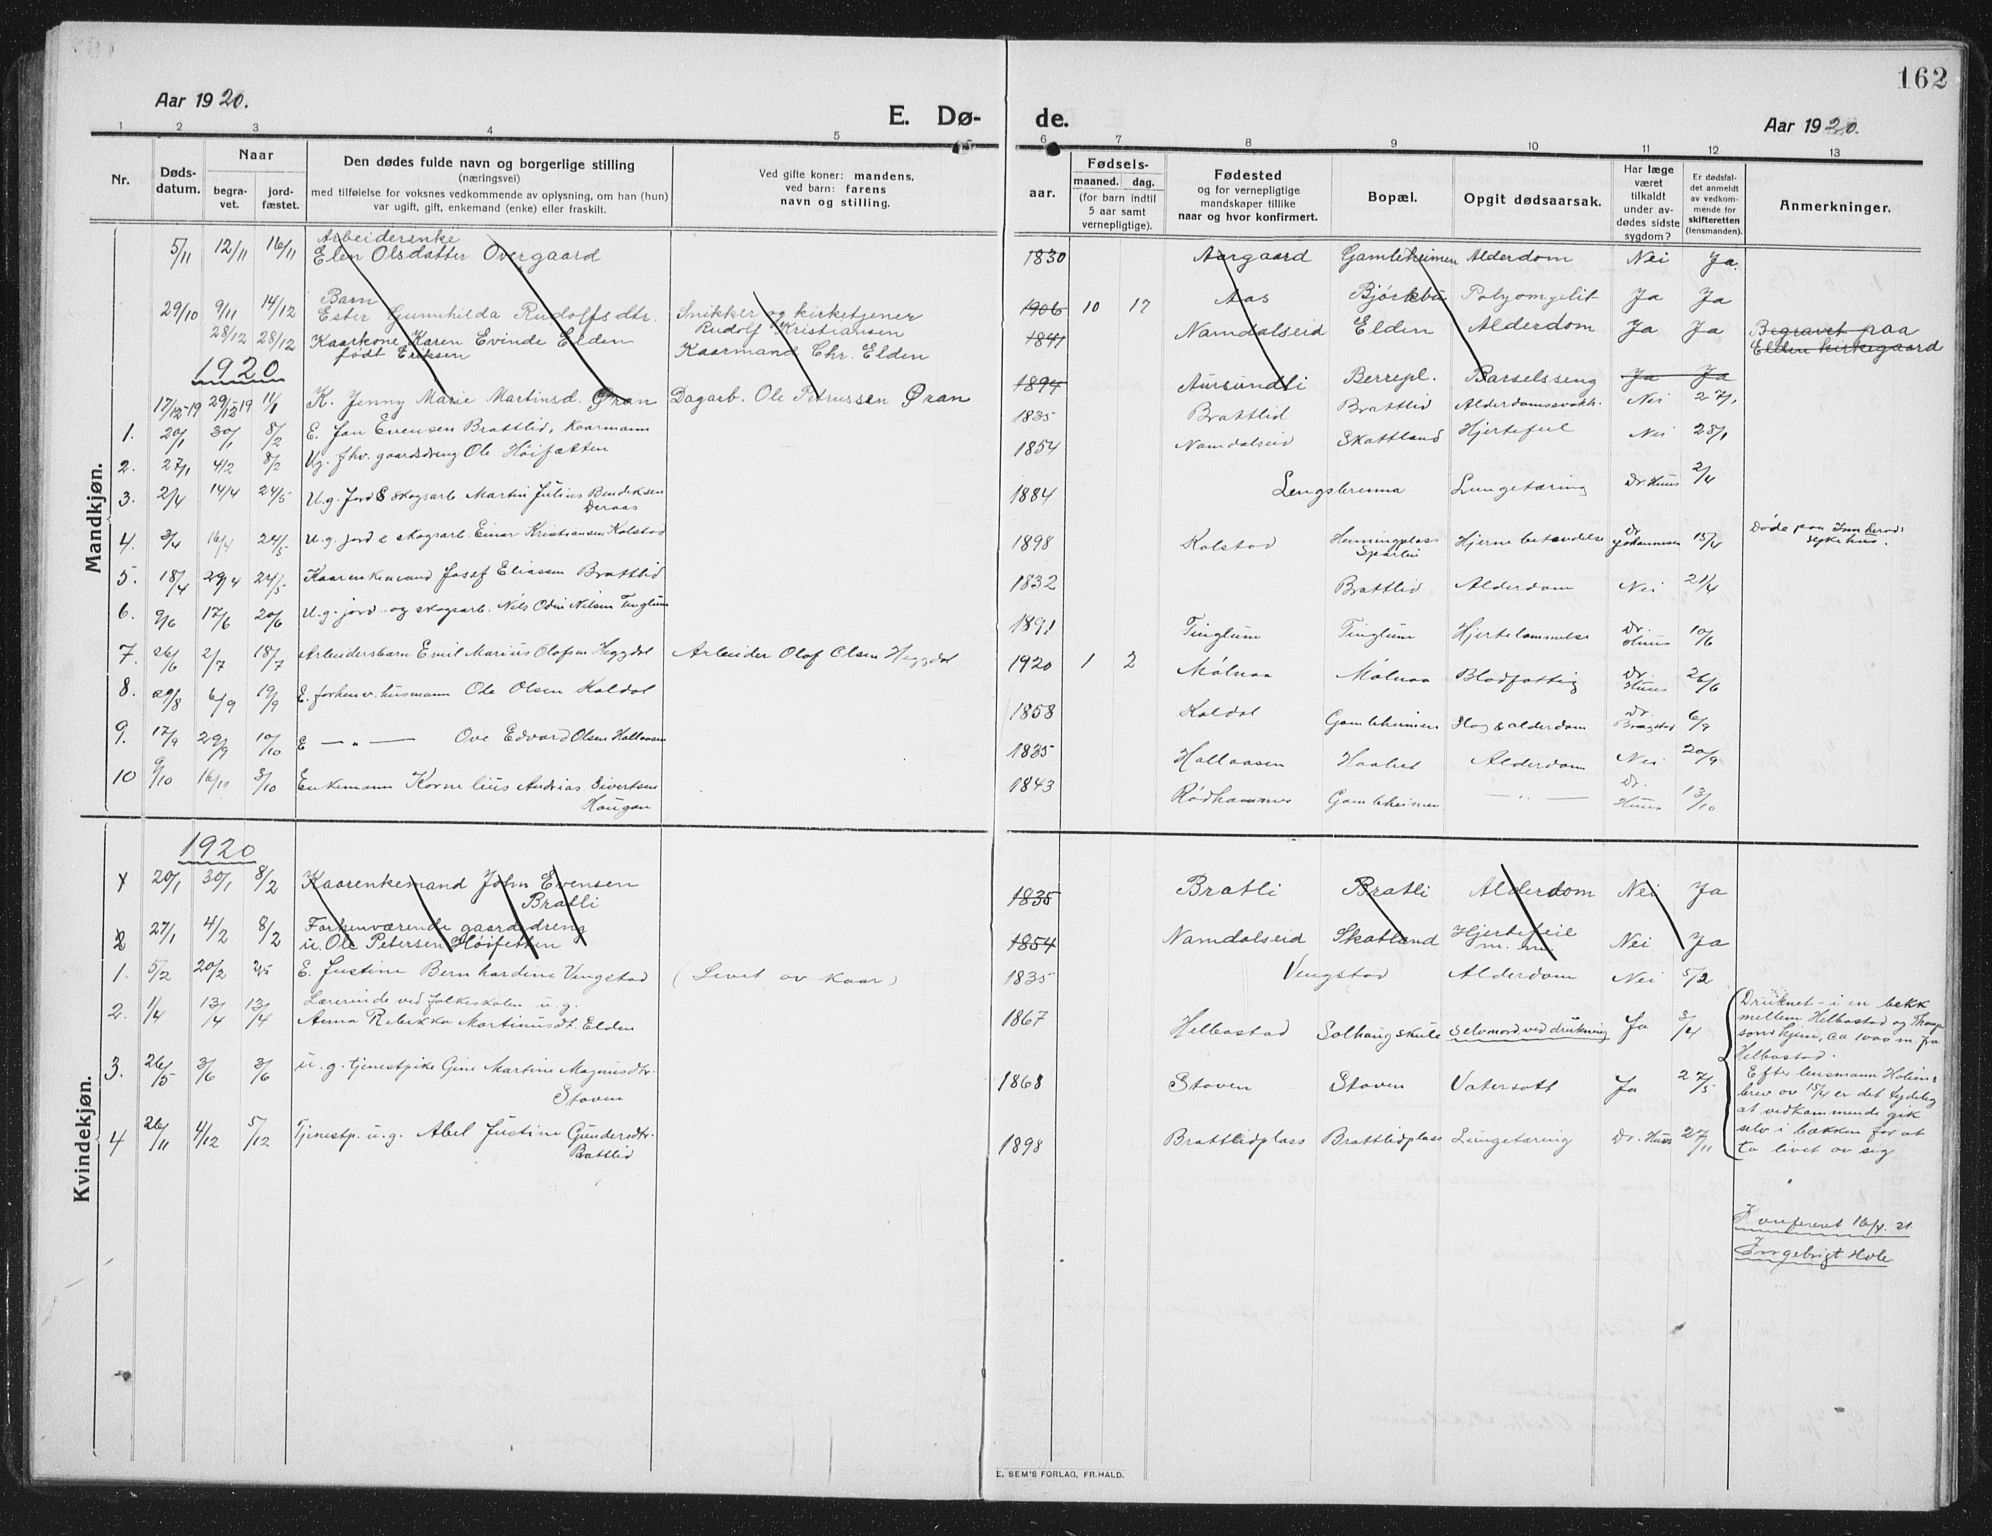 162
Aar 1920. E. Dø- de. Aar 1920.
1 2 3 4 5 6 7 8 9 10 11 12 13
Nr. Døds-datum. Naar begra-vet. jord-fæstet. Den dødes fulde navn og borgerlige stilling (næringsvei) med tilføielse for voksnes vedkommende av oplysning, om han (hun) var ugift, gift, enkemand (enke) eller fraskilt. Ved gifte koner: mandens, ved barn: farens navn og stilling. aar. Fødsels- maaned. dag. (for barn indtil 5 aar samt vernepligtige). Fødested og for vernepligtige mandskaper tillike naar og hvor konfirmert. Bopæl. Opgit dødsaarsak. Har læge været tilkaldt under av-dødes sidste sygdom? Er dødsfal-det anmeldt av vedkom-mende for skifteretten (lensmanden). Anmerkninger.
Mandkjøn.
5/11 12/11 16/11 Arbeiderenke
Elen Olsdatter Overgaard 1830 Aargaard Gamleheimen Alderdom Nei Ja.
29/10 9/11 14/12 Barn
Ester Gunnhilda Rudolfsdtr. Snikker og kirketjener
Rudolf Kristiansen 1906 10 17 Aas Bjørkbu Ja Ja
28/12 28/12 Kaarkone Karen Evinde Elden
født Eriksen Kaarmand Chr. Elden 1841 Namdalseid Elden Alderdom Ja Ja Begravet paa
Elden kirkegaard
1920
17/12-19 29/12-19 1/1 K. Jenny Marie Martinsd. Øran Dagarb. Ole Petrussen Øran 1894 Aursundli Berrepl. Barselsseng Ja Ja
1. 20/1 30/1 8/2 E. Jan Evensen Brattlid, Kaarmann 1835 Brattlid Brattlid Alderdomssvakh. Nei 27/1
2. 27/1 4/2 8/2 Ug. fhv. gaardsdreng Ole Høifætten 1854 Namdalseid Skattland Hjertefeil Nei 28/1
3. 2/4 14/4 24/5 U.g. Jord & skogsarb. Martin Julius Bendiksen
Deraas 1884 Lengsbrenna Lungetæring Dr. Huus 2/4
4. 3/4 16/4 24/5 U.g. jord & skogsarb. Einar Kristiansen Kolstad 1898 Kolstad Henningplass Hjernebetændelse Dr. Johannesen 15/4 Døde paa Innherod:
sykehus.
5. 18/4 29/4 24/5 Kaarenkemand Josef Eliassen Brattlid 1832 Brattlid Alderdom Nei 21/4
6. 9/6 17/6 20/6 U.g. jord- og skogsarb. Nils Odin Nilsen Tinglum 1891 Tinglum Tinglum Hjertelammelse Dr. Huus 10/6
7. 26/6 2/7 18/7 Arbeidersbarn Emil Marius Olofsen Heggdal Arbeider Olof Olsen Heggdal 1920 1 2 Mølnaa Mølnaa Blodfattig Dr. Huus 26/6
8. 29/8 6/9 19/9 E. forhenv. husmann Ole Olsen Koldal 1858 Koldal Gamleheimen Slag & alderdom Dr. Bragstad 6/9
9. 17/9 29/9 10/10 E — „ — Ove Edvard Olsen Hallaasen 1835 Hallaasen Alderdom Nei 20/9
10 9/10 16/10 3/10 Enkemann Kornelius Andrias Sivertsen
Haugan 1843 Rødhammer Gamleheimen — „ — Dr. Huus 13/10
Kvindekjøn.
1920
1 20/1 30/1 8/2 Kaarenkemand John Evensen
Bratli 1835 Bratli Bratli Alderdom Nei Ja
2 27/1 4/2 8/2 Forhenværende gaardsdreng
u. Ole Petersen Høifetten 1854 Namdalseid Skatland Hjertefeil
m. m. Nei Ja
1. 5/2 20/2 2/5 E. Justine Bernhardine Vengstad (Levet av kaar) 1835 Vengstad Alderdom Nei 5/2
2. 1/4 13/4 13/4 Lærerinde ved folkeskolen u.g.
Anna Rebekka Martinusdt. Elden 1867 Helbostad Solhaug skule Selvmord ved drukning Ja 3/4
3. 26/5 3/6 3/6 u.g. tjenestpike Gine Martine Magnusdtr.
Stoven 1868 Stoven Stoven Vatersott Ja 27/5
4 26/11 4/12 5/12 Tjenestp. u.g. Abel Justine Gundersdtr.
Brattlid 1898 Brattlidplass Brattlidplass Lungetæring Dr. Huus 27/11
Druknet - i en bekk
mellem Helbostad og
ca 1000 m. fra
Helbostad.
Efter lensmann Holiens
brev av 15/4 er det tydelig
at vedkommende gik
selv i bækken for at
ta livet av sig
Konferert 16/4. 21.
Ingebrigt Hole
E. SEM'S FORLAG, FR.HALD.